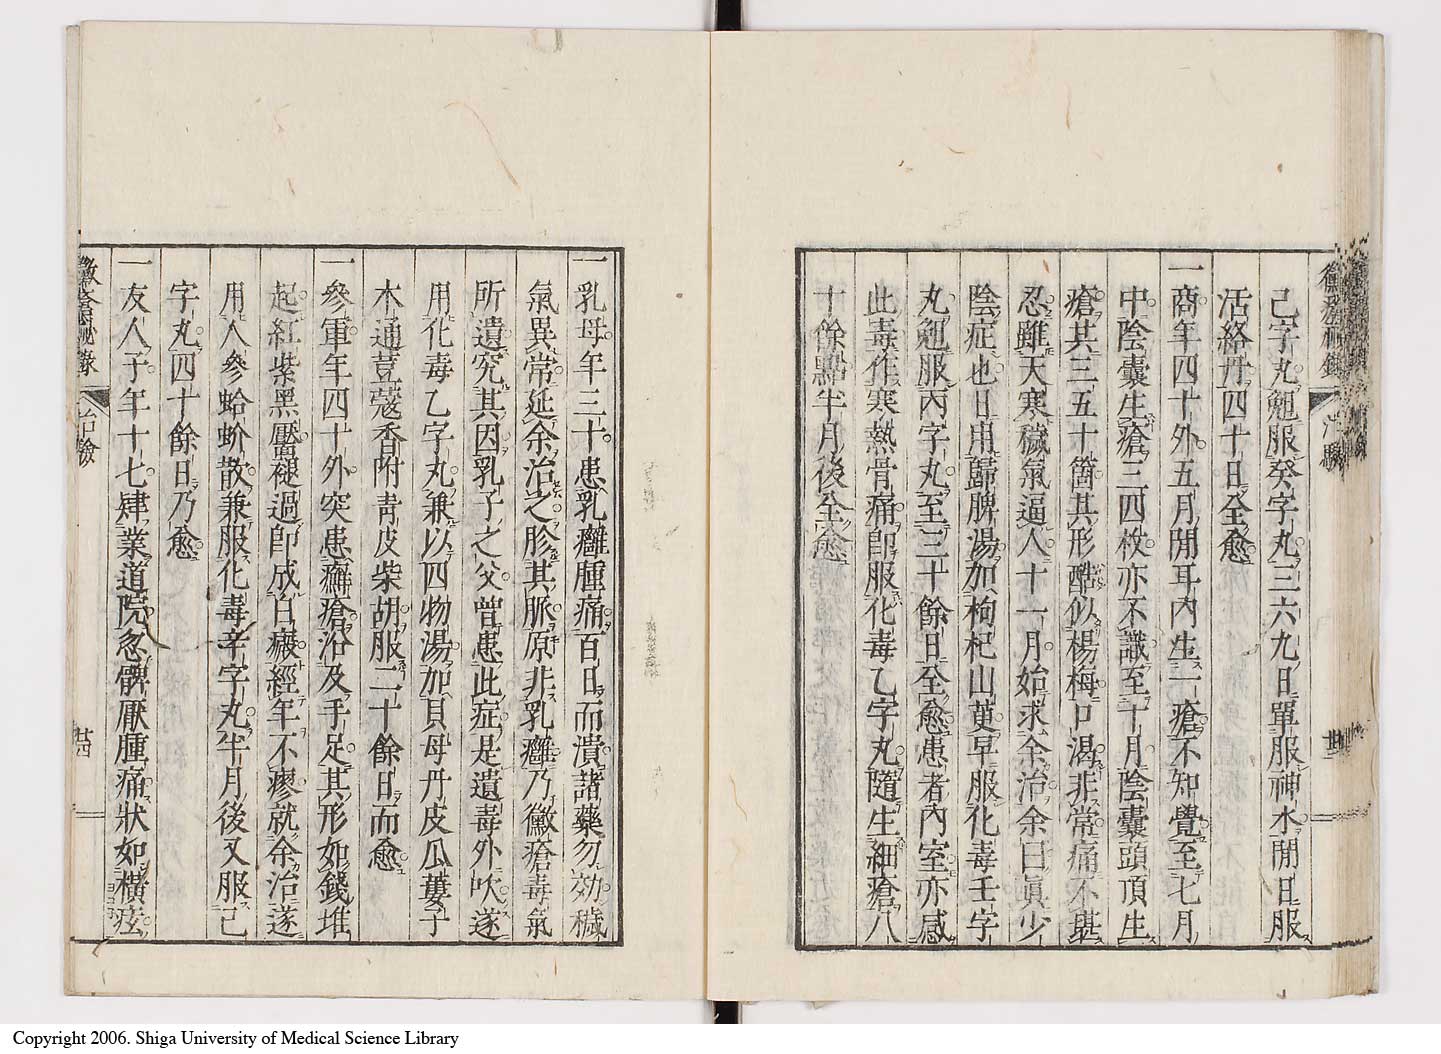 己字丸兼服癸字丸三六九日單服神水閒日服
活絡丹四十日全愈
一商年四十外五月閒耳內生一瘡不知覺至七月
中陰囊生瘡三四枚亦不識至十月陰囊頭頂生
瘡其三五十箇其形酷似楊梅口渴非常痛不堪
忍雖天寒穢氣逼人十一月始求余治余曰眞少
陰症也日用歸脾湯加枸杞山茰早服化毒壬字
丸兼服丙字丸至三十餘日全愈患者內室亦感
此毒作寒熱骨痛卽服化毒乙字丸隨生細瘡八
十餘點半月後全愈
黴瘡秘錄 治驗
一乳母年三十患乳癰腫痛百日而潰諸藥勿効穢
氣異常延余治之胗其脈原非乳癰乃黴瘡毒氣
所遺究其因乳子之父曾患此症是遺毒外吹遂
用化毒乙字丸兼以四物湯加貝母丹皮瓜蔞子
木通荳蔻香附靑皮柴胡服二十餘日而愈
一參軍年四十外突患癬瘡沿及手足其形如錢堆
起紅紫黑靨褪過卽成白癜經年不瘳就余治遂
用人參蛤蚧散兼服化毒辛字丸半月後又服己
字丸四十餘日乃愈
一友人子年十七肄業道院忽髀厭腫痛狀如橫痃
黴瘡秘錄 治驗 廿四
Copyright 2006. Shiga University of Medical Science Library